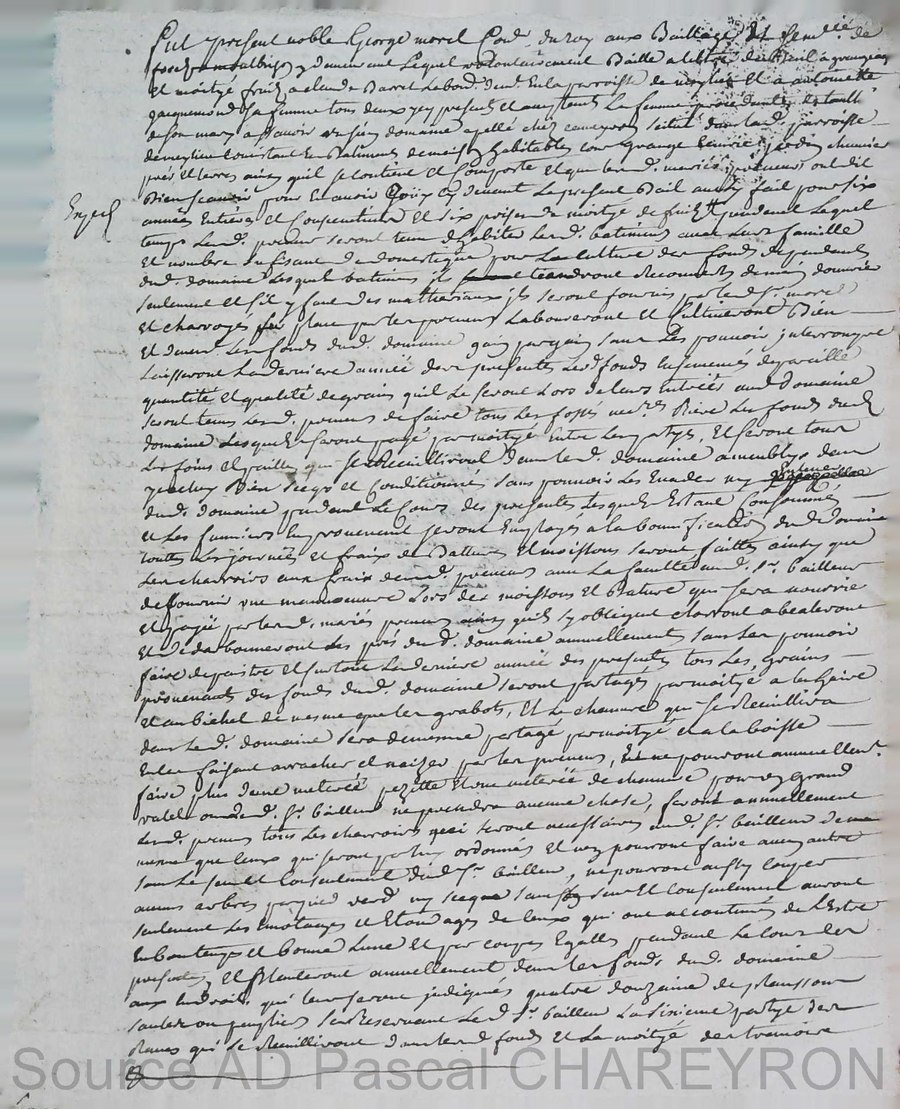 Fut present noble George morel Cons. du roy aux Bailliage et Senn.ée de
forest a montbrison y demeurant Lequel volontairement Baille a titre de Bail a grangeage
Et moitye fruits a claude Barret Labour. demt. En la parroisse de et a antoinette
jacquemond sa femme tous deux icy presents Et acceptants La femme de lautorité
de son mary a scavoir un sien domaine apellé chez cameyron scitué dans lad. parroisse
de Consistant En Batiments de maison habitables cour grange Ecurie jardin chenevier
prés Et terres ainsy quil se Contient Et Comporte Et que lesd. mariés preneurs ont dit
Bien scavoir pour En avoir Jouy cy devant Le present Bail ainsy fait pour six
années Entieres Et Consecutives Et six prises de moitye de fruits pendant Lequel
temps Lesd. preneurs seront tenus d'habiter Lesd. batiments avec Leur famille
Et nombre sufisant de domestiques pour La Culture des fonds dependants
dud. domaine Lesquels batiments ils tiendront recouverts de main douvrier
seulement Et s'il y faut des matheriaux ils seront fournis par led. Sr. morel
Et charroyés sur place par les preneurs Laboureront Et Cultiveront Bien
Et Les fonds dud. domaine sans Les pouvoir interrompre
Laisseront La derniere année des presentes Lesd. fonds Ensemencés de pareille
quantité Et qualité de grains quil Le seront Lors de leurs Entrées aud. domaine
seront tenus Lesd. preneurs de faire tous Les fossés necres. Rière Les fonds dud.
domaine Lesquels seront payé par moityé Entre Les partyes, Et seront tous
Les foins Et pailles qui se Recuilliront dans led. domaine assemblés dans
iceluy Bien secqs Et Conditionnés sans pouvoir Les Enlever ny
dud. domaine pendant Le Cours des presentes Lesquels Estant Consommés
Et Les fumiers En provenant seront Employés a la bonnification dud. domaine
toutes Les journées Et fraix de Batture Et moissons seront faittes ainsy que
Les charrois aux fraix desd. preneurs avec La faculté aud. Sr. bailleur
de fournir une manoeuvre Lors des moissons Et Bature qui sera nourrie
Et payé par lesd. mariés preneurs ainsy quils sy obligent
Et les prés dud. domaine annuellement sans Les pouvoir
faire depaistre Et surtout La derniere année des presentes tous Les grains
provenants des fonds dud. domaine seront partagés par moityé a la gerbe
Et au bichet de mesme que les grabots, Et Le chanvre qui se Recuillira
dans Led. domaine sera de mesme partagé par moityé Et a la boisse
En le faisant arracher Et naizer par les preneurs, Et ne pouront annuellemt.
faire plus d'une metérée pezette Et une metérée de chanvre pour un grand
valet ou led. Sr. bailleur ne prendra aucune chose, feront annuellement
Lesd. preneurs tous Les charrois qui seront necessaires aud. Sr. bailleur de
mesme que Ceux qui seront par luy ordonnés Et n'en pouront faire aucun autre
sans Le sceu Et Consentement dud. Sr. bailleur, ne pouront aussy Couper
aucuns arbres par pied verd ny secq sans son sceu Et Consentement auront
seulement Les Emotages Et Etondages de Ceux qui ont accoutumés de L'Estre
En bon temps Et bonne Lune Et par coupes Egalles pendant Le Cours des
presentes, Et planteront annuellement dans les fonds dud. domaine
aux Endroits qui leur seront indiqués quatre douzaine de
saules ou peupliers se Reservant Led. Sr. bailleur La sixieme partye des
Raves qui se Recuilliront dans lesd. fonds Et La moityé des
Source AD Pascal CHAREYRON